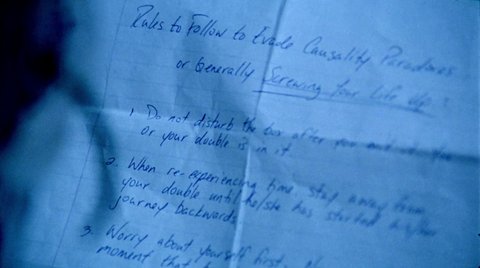 Rules to Follow to Evade Causality Paradoxes
or Generally Screwing Your Life Up:
1. Do not disturb the box after you and
or your double is in it.
2. When re-experiencing time, stay away from
your double until he/she has started his/her
journey backwards.
3. Worry about yourself first.
moment that